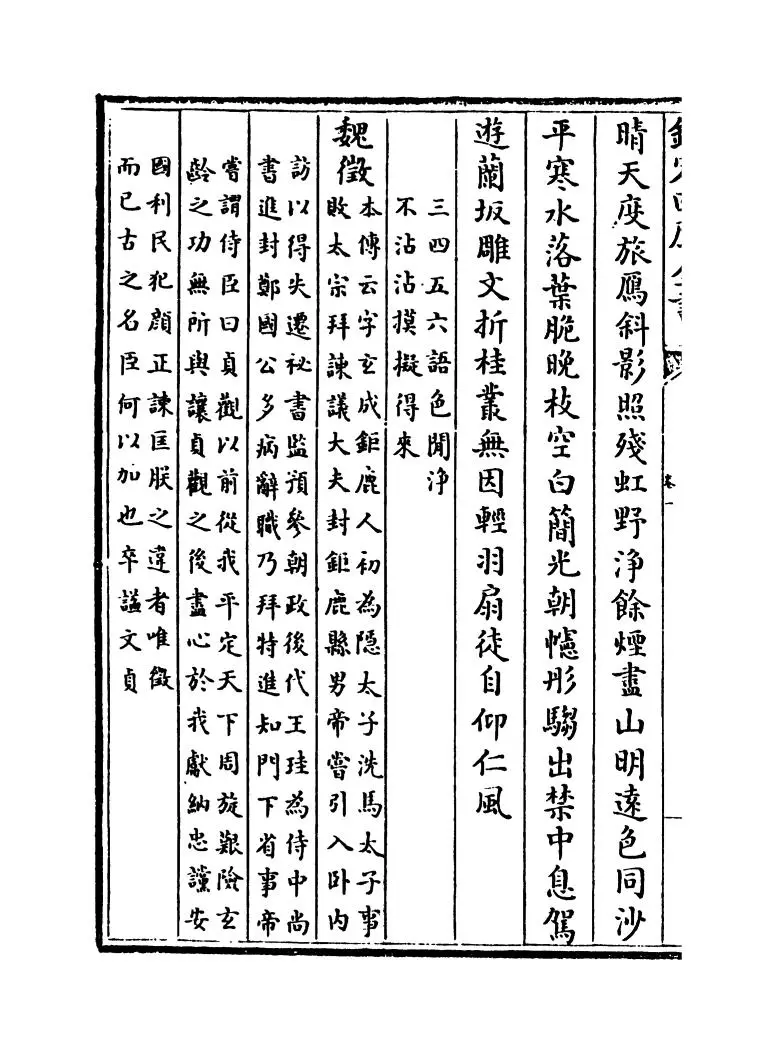 晴天度旅鴈斜影照殘虹野淨餘煙盡山明遠色同沙
平寒水落葉脆晚枝空白簡光朝幰彤騶出禁中息駕
遊蘭坂雕文折桂叢無因輕羽扇徒自仰仁風
三四五六語色閒淨
不沾沾摸擬得來
魏徵
本傳云字玄成鉅鹿人初為隠太子洗馬太子事
敗太宗拜諫議大夫封鉅鹿縣男帝嘗引入卧内
訪以得失遷祕書監預參朝政後代王珪為侍中尚
書進封鄭國公多病辭職乃拜特進知門下省事帝
嘗謂侍臣曰貞觀以前從我平定天下周旋艱險玄
齡之功無所與讓貞觀之後盡心於我獻納忠讜安
國利民犯顔正諫匡朕之違者唯徵
而已古之名臣何以加也卒諡文貞